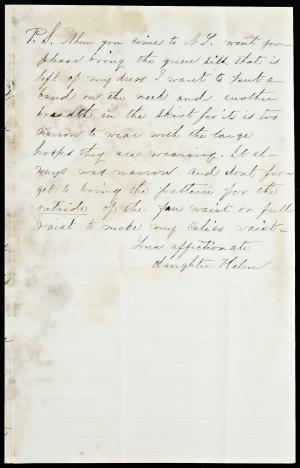 P.S. When you come to N.Y. wont you
please bring the green silk that is
left of my dress I want to put a
band on the neck and another
breadth in the skirt for it is too
narrow to wear with the large
hoops they are wearing. It al-
ways was narrow. and dont for-
get to bring the pattern for the
outside of the waist or full
waist to make my calico waist—
Your affectionate
daughter Helen